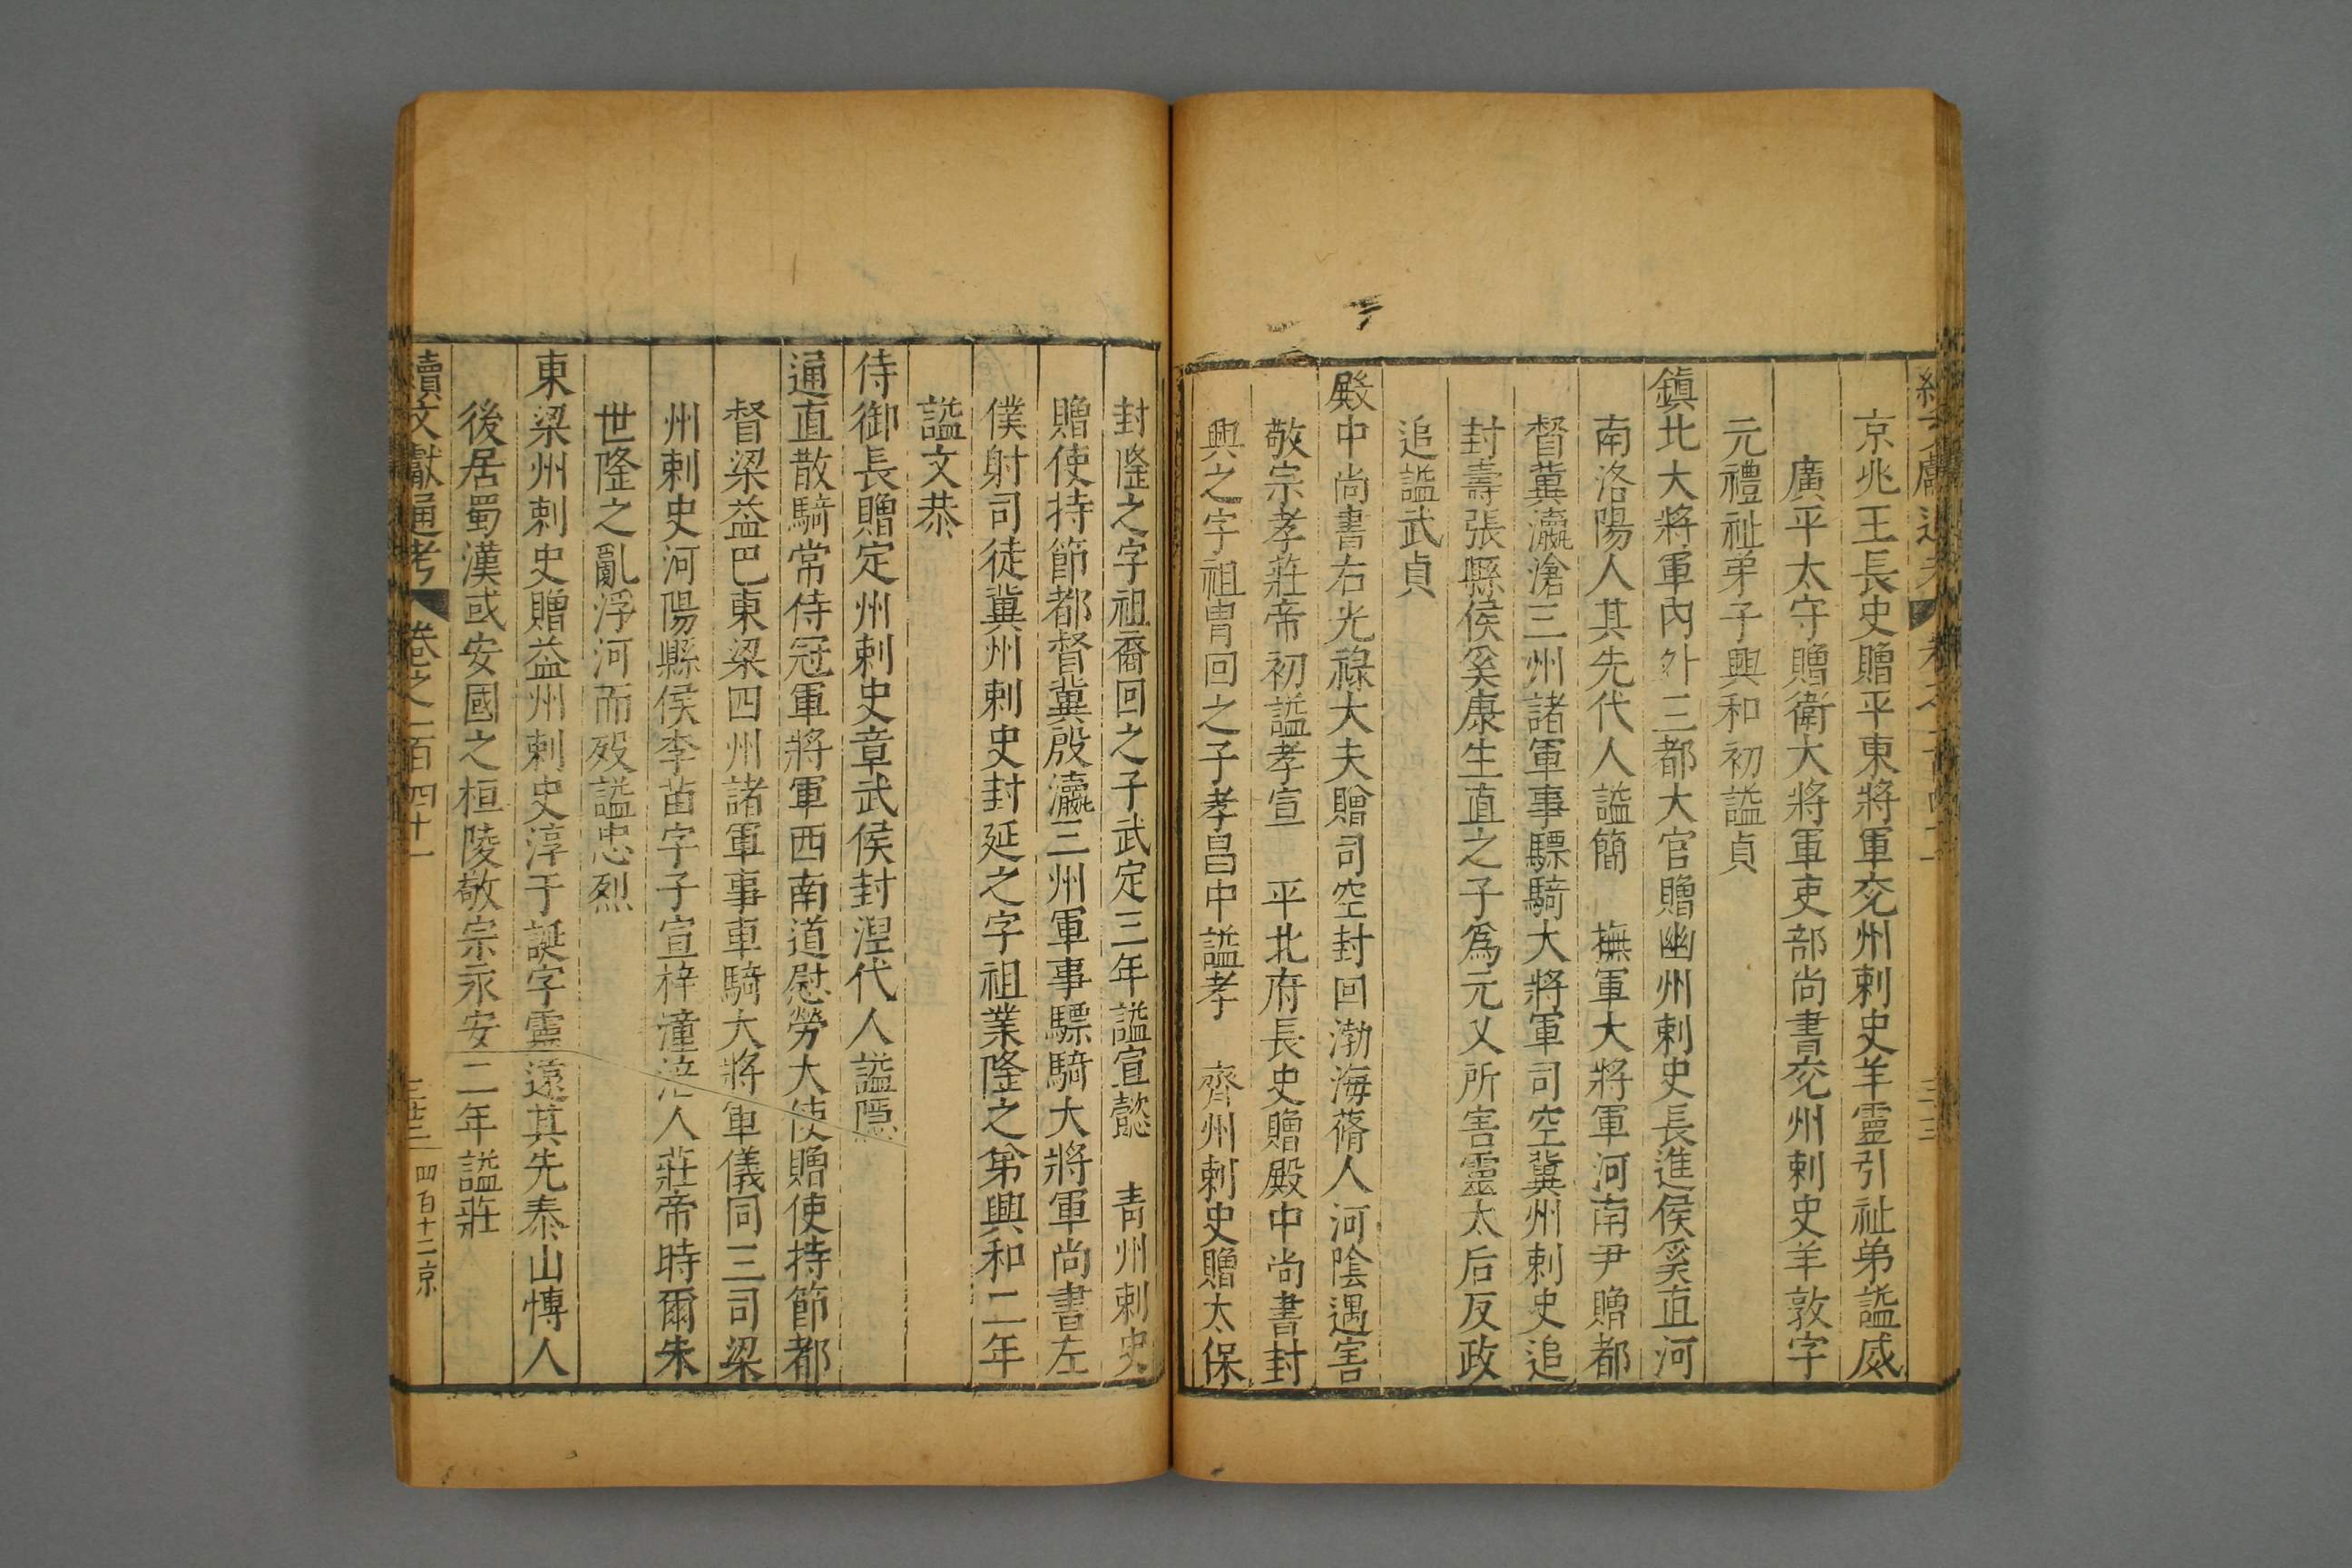 京兆王長史贈平東將軍兗州刺史羊靈引祉弟謚威
廣平太守贈衛大將軍吏部尚書兗州刺史羊敦字
元禮祉弟子興和初謚貞
鎮北大將軍內外三都大官贈幽州刺史長進侯奚直河
南洛陽人其先代人謚簡　撫軍大將軍河南尹贈都
督冀瀛滄三州諸軍事驃騎大將軍司空冀州刺史追
封壽張縣侯奚康生直之子爲元乂所害靈太后反政
追謚武貞
殿中尚書右光祿大夫贈司空封回渤海蓨人河陰遇害
敬宗孝莊帝初謚孝宣　平北府長史贈殿中尚書封
興之字祖胄回之子孝昌中謚孝　齊州刺史贈太保
封隆之字祖裔回之子武定三年謚宣懿　青州刺史
贈使持節都督冀殷瀛三州軍事驃騎大將軍尚書左
僕射司徒冀州刺史封延之字祖業隆之弟興和二年
謚文恭
侍御長贈定州刺史章武侯封湼代人謚隱
通直散騎常侍冠軍將軍西南道慰勞大使贈使持節都
督梁益巴東梁四州諸軍事車騎大將軍儀同三司梁
州刺史河陽縣侯李苗字子宣梓潼涪人莊帝時爾朱
世隆之亂浮河而歿謚忠烈
東梁州刺史贈益州刺史淳于誕字靈遠其先泰山愽人
後居蜀漢或安國之桓陵敬宗永安二年謚莊
續文獻通考　卷之一百四十一　三十三　四百十二京